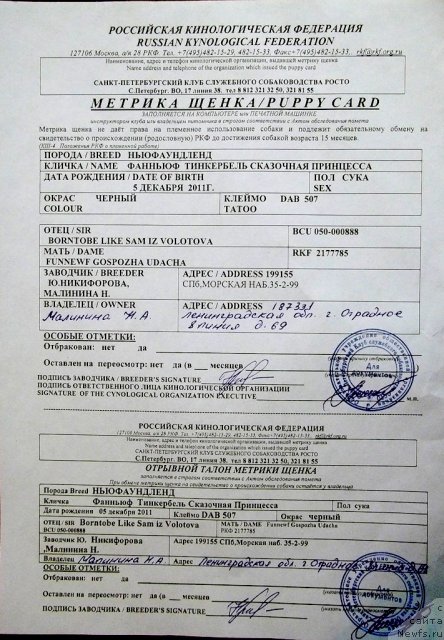 РОССИЙСКАЯ КИНОЛОГИЧЕСКАЯ ФЕДЕРАЦИЯ
RUSSIAN KYNOLOGICAL FEDERATION
127106 Москва, а/я 28 РКФ. Тел./Tel. +7(495)482-15-29, 482-15-33, Факс+7(495)482-15-33, rkf@rkf.org.ru
Наименование, адрес и телефон кинологической организации, выдавшей метрику щенка
Name address and telephone of the organization which issued the puppy card
САНКТ-ПЕТЕРБУРГСКИЙ КЛУБ СЛУЖЕБНОГО СОБАКОВОДСТВА РОСТО
С.Петербург. ВО, 17 линия 38. тел 8 812 321 32 50, 321 81 55
МЕТРИКА ЩЕНКА/PUPPY CARD
ЗАПОЛНЯЕТСЯ НА КОМПЬЮТЕРЕ или ПЕЧАТНОЙ МАШИНКЕ
инструктором клуба или владельцем питомника в строгом соответствии с Актом обследования помета
Метрика щенка не даёт права на племенное использование собаки и подлежит обязательному обмену на
свидетельство о происхождении (родословную) РКФ до достижения собакой возраста 15 месяцев.
Положения РКФ о племенной работе)
ПОРОДА / BREED НЬЮФАУНДЛЕНД
КЛИЧКА / NAME ФАННЬЮФ ТИНКЕРБЕЛЬ СКАЗОЧНАЯ ПРИНЦЕССА
ДАТА РОЖДЕНИЯ / DATE OF BIRTH ПОЛ СУКА
5 ДЕКАБРЯ 2011Г. SEX
ОКРАС ЧЕРНЫЙ КЛЕЙМО DAB 507
COLOUR TATOO
ОТЕЦ / SIR BCU 050-000888
BORNTOBE LIKE SAM IZ VOLOTOVA
МАТЬ / DAME RKF 2177785
FUNNEWF GOSPOZHA UDACHA
ЗАВОДЧИК / BREEDER АДРЕС / ADDRESS 199155
Ю.НИКИФОРОВА, СПб,МОРСКАЯ НАБ.35-2-99
МАЛИНИНА Н.
ВЛАДЕЛЕЦ / OWNER АДРЕС / ADDRESS 187331
Малинина Н.А. Ленинградская обл. г. Отрадное
8 линия д. 69
ОСОБЫЕ ОТМЕТКИ:
Отбракован: нет да
Оставлен на пересмотр: нет да (в ___ месяцев
ПОДПИСЬ ЗАВОДЧИКА / BREEDER'S SIGNATURE
ПОДПИСЬ ОТВЕТСТВЕННОГО ЛИЦА КИНОЛОГИЧЕСКОЙ ОРГАНИЗАЦИИ
SIGNATURE OF THE CYNOLOGICAL ORGANIZATION EXECUTIVE
М.П.
Для документов
РОССИЙСКАЯ КИНОЛОГИЧЕСКАЯ ФЕДЕРАЦИЯ
127106 Москва, а/я 28 РКФ. Тел./Tel. +7(495)482-15-29, 482-15-33, Факс+7(495)482-15-33, rkf@rkf.org.ru
Наименование, адрес и телефон кинологической организации, выдавшей метрику щенка
Name, address and telephone of the organization which issued the puppy card
САНКТ-ПЕТЕРБУРГСКИЙ КЛУБ СЛУЖЕБНОГО СОБАКОВОДСТВА РОСТО
С.Петербург. ВО, 17 линия 38. тел 8 812 321 32 50, 321 81 55
ОТРЫВНОЙ ТАЛОН МЕТРИКИ ЩЕНКА
заполняется в строгом соответствии с Актом обследования помета
При обмене метрики на свидетельство о происхождении собаки остаётся у владельца
Порода Breed НЬЮФАУНДЛЕНД
Кличка Фанньюф Тинкербель Сказочная Принцесса Пол сука
Дата рождения 05 декабря 2011 Клеймо DAB 507 Окрас черный
ОТЕЦ / SIR Borntobe Like Sam iz Volotova МАТЬ / DAME Funnewf Gospozha
BCU 050-000888 Udacha RKF 2177785
Заводчик Ю. Никифорова Адрес 199155 СПб,Морская наб. 35-2-99
,Малинина Н.
Владелец Малинина Н.А. Адрес Ленинградская обл. г Отрадное
ОСОБЫЕ ОТМЕТКИ:
Отбракован: нет да
Оставлен на пересмотр: нет да (в ___ месяцев)
ПОДПИСЬ ЗАВОДЧИКА / BREEDER'S SIGNATURE
Для документов
с сайта
Newfs.ru